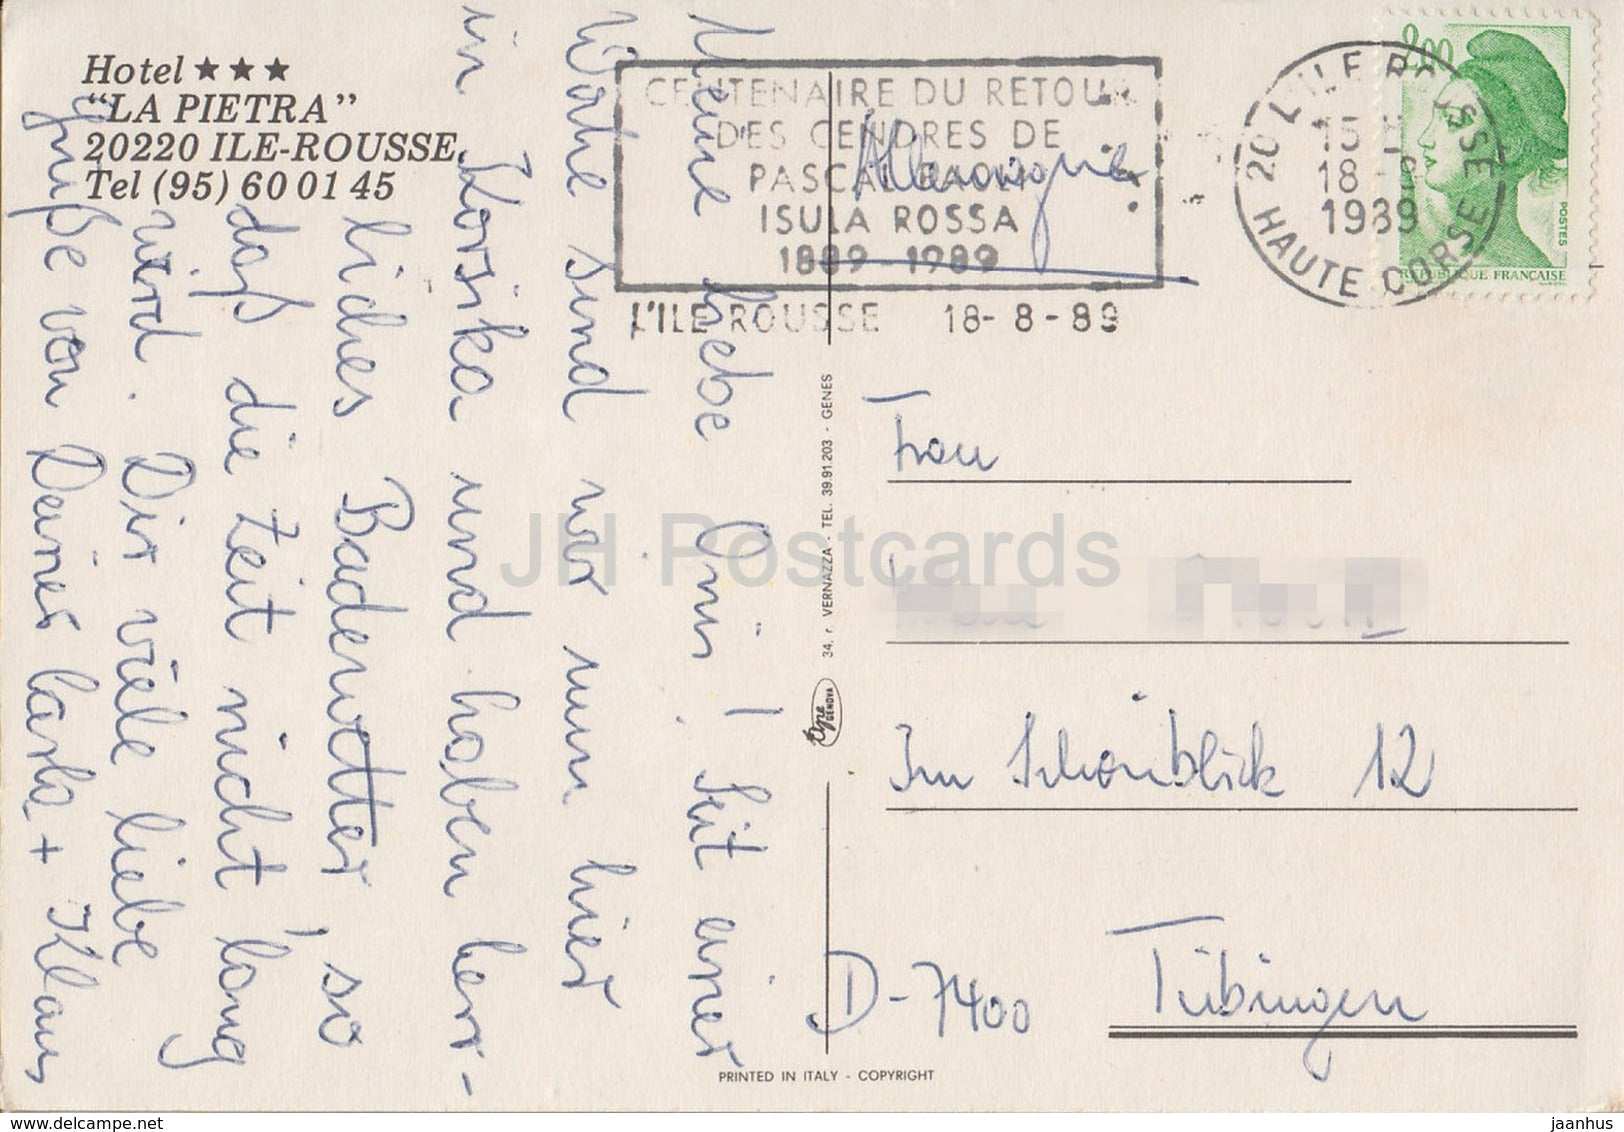 Hotel ★★★
"LA PIETRA"
20220 ILE-ROUSSE
Tel (95) 60 01 45
CENTENAIRE DU RETOUR
DES CENDRES DE
PASCAL PAOLI
ISULA ROSSA
1889-1989
L'ILE ROUSSE 18-8-89
Allemagne
20 L'ILE ROUSSE
18-8
1989
HAUTE CORSE
2,00
POSTES
REPUBLIQUE FRANÇAISE
Meine liebe Omi! Seit einer
Woche sind wir nun hier
in Korsika und haben herr-
liches Badewetter, so
daß die Zeit nicht lang
wird. Dir viele liebe
Grüße von Deiner Carla + Klaus
34, r. VERNAZZA - TEL. 39.91.203 - GENES
GENOVA
Frau
Im Schönblick 12
D-7400 Tübingen
PRINTED IN ITALY - COPYRIGHT
JH Postcards
www.delcampe.net
jaanhus